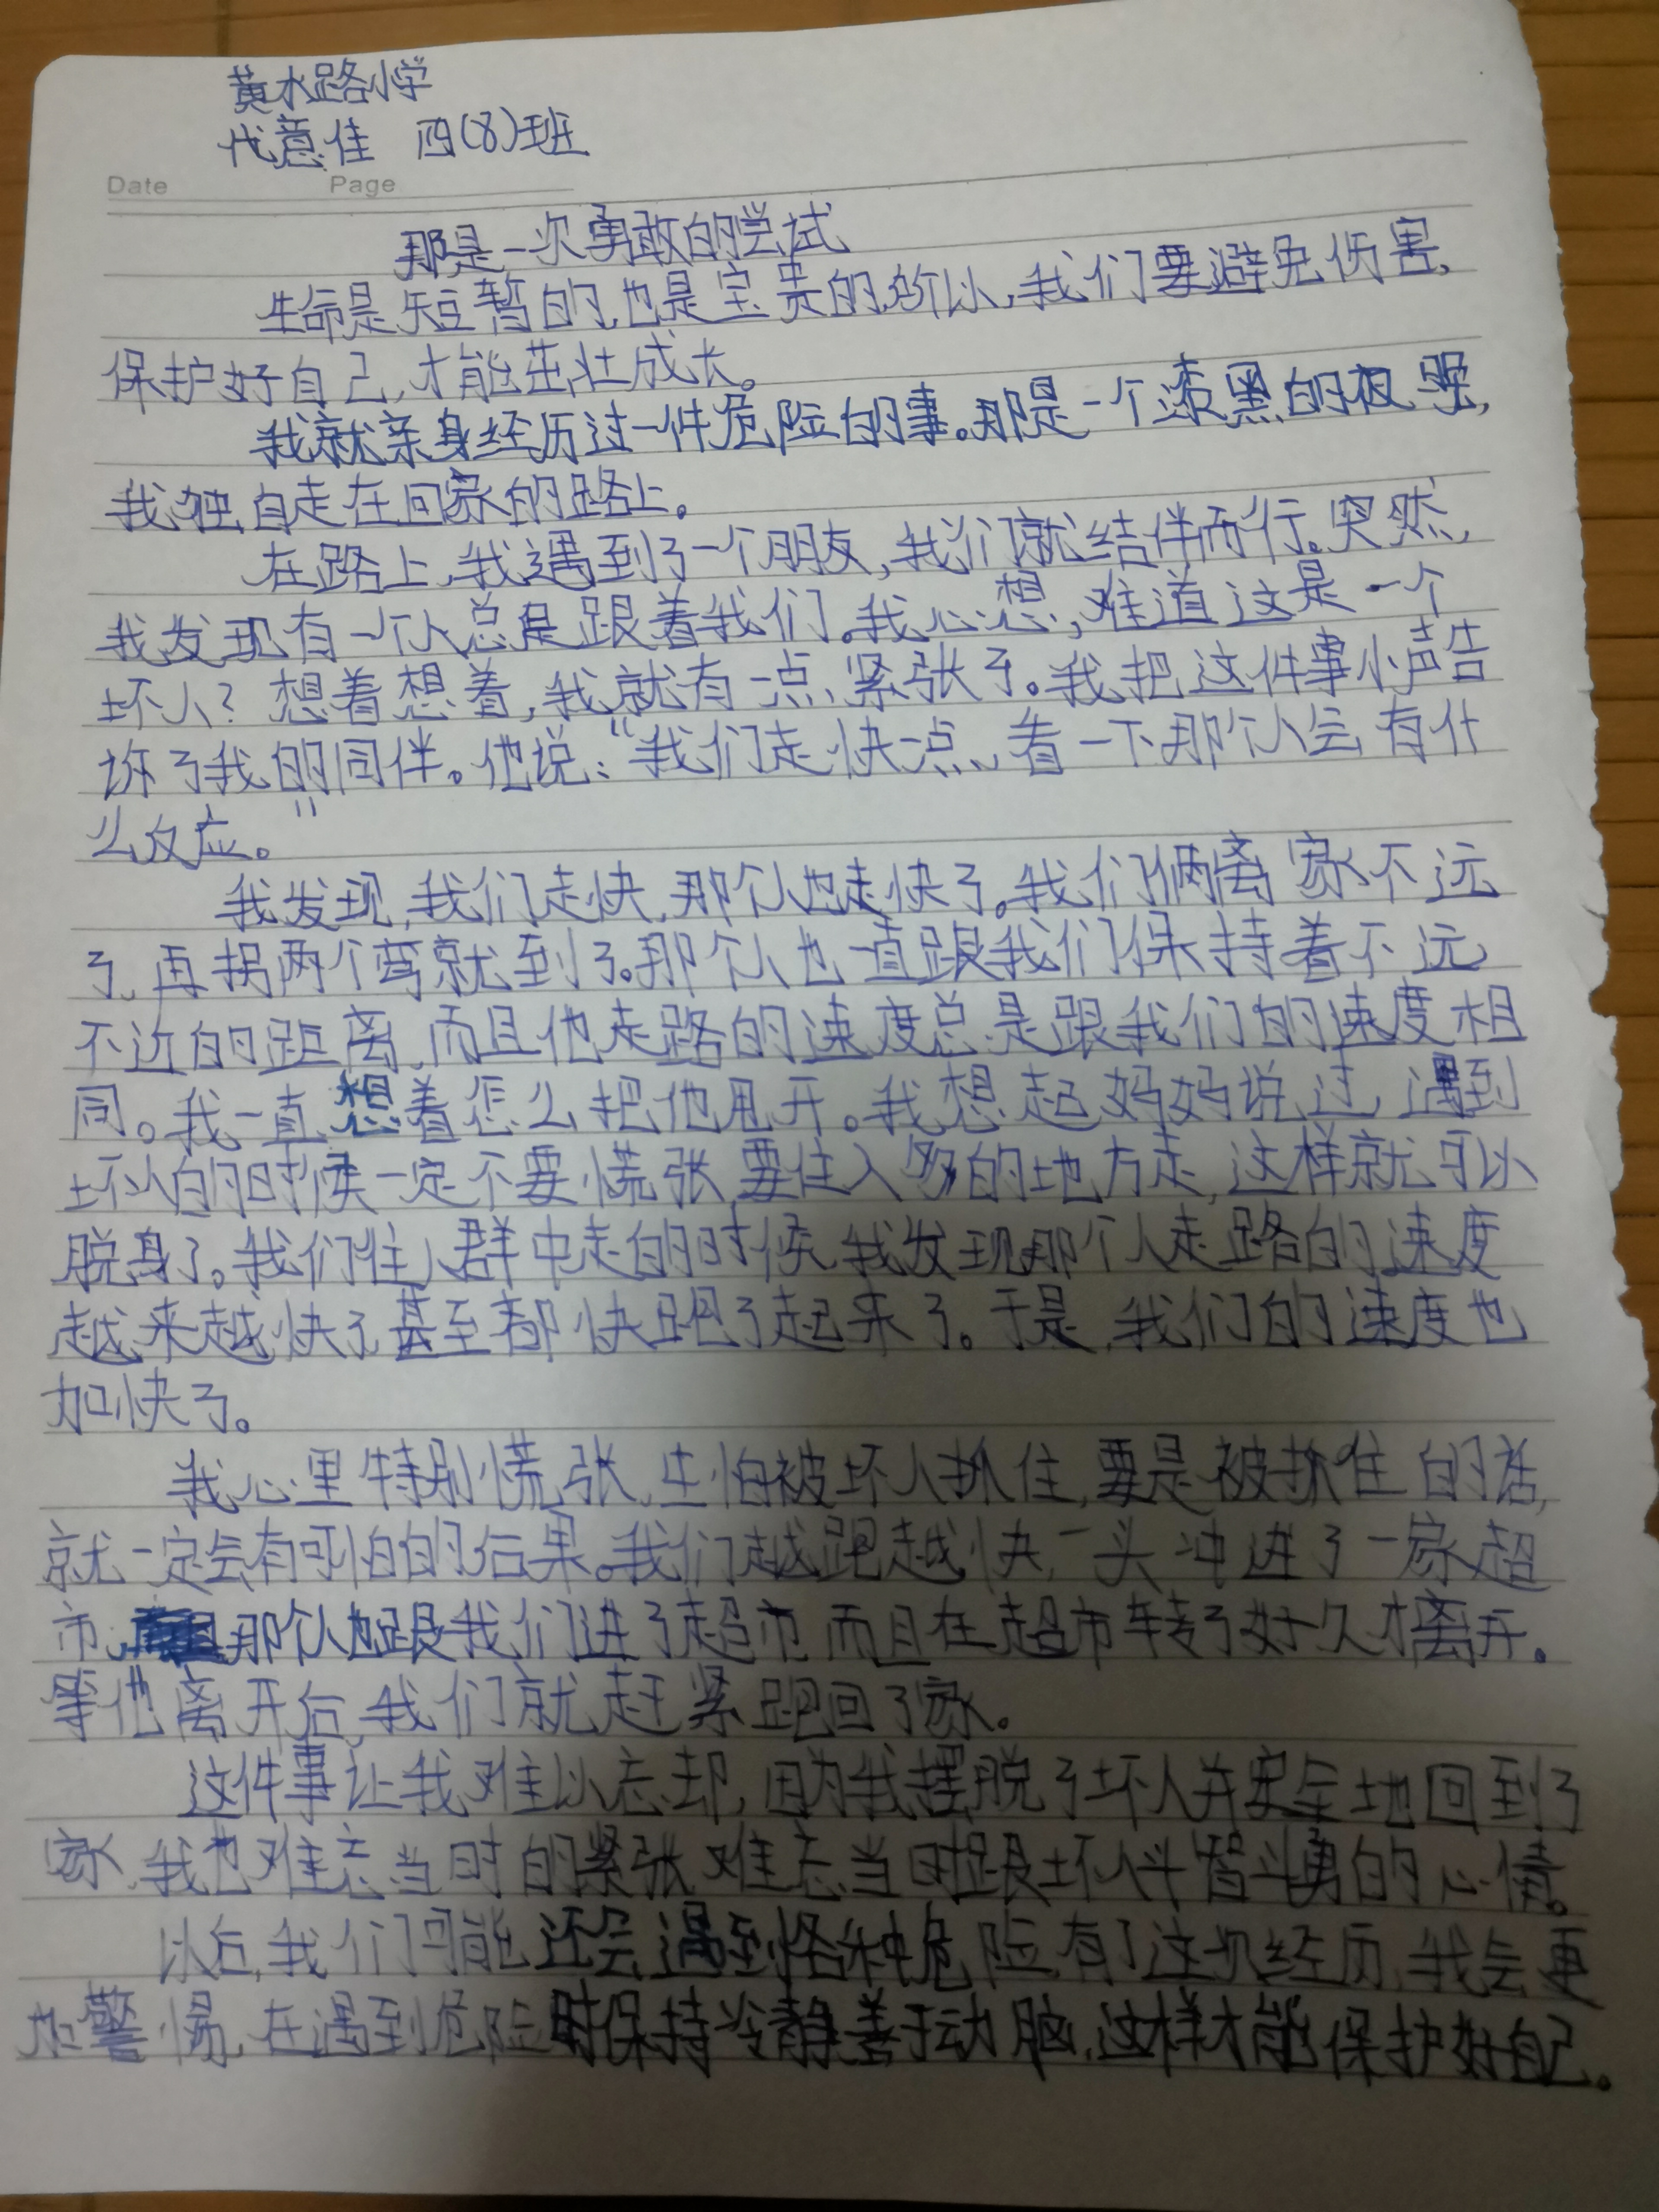 黄水路小学
代意佳 四(8)班
Date Page
那是一次勇敢的尝试
生命是短暂的,也是宝贵的,所以,我们要避免伤害,
保护好自己,才能茁壮成长。
我就亲身经历过一件危险的事。那是一个漆黑的夜晚,
我独自走在回家的路上。
在路上,我遇到了一个朋友,我们就结伴而行。突然,
我发现有一个人总是跟着我们。我心想,难道这是一个
坏人?想着想着,我就有一点紧张了。我把这件事小声告
诉了我的同伴。他说:“我们走快点,看一下那个人会有什
么反应。”
我发现,我们走快,那个人也走快了。我们俩离家不远
了,再拐两个弯就到了。那个人也一直跟我们保持着不远
不近的距离,而且他走路的速度总是跟我们的速度相
同。我一直想着怎么把他甩开。我想起妈妈说过,遇到
坏人的时候一定不要慌张,要往人多的地方走,这样就可以
脱身了。我们往人群中走的时候,我发现那个人走路的速度
越来越快了,甚至都快跑了起来了。于是,我们的速度也
加快了。
我心里特别慌张,生怕被坏人抓住,要是被抓住的话,
就一定会有可怕的后果。我们越跑越快,一头冲进了一家超
市,那个人也跟我们进了超市,而且在超市转了好久才离开。
等他离开后,我们就赶紧跑回了家。
这件事让我难以忘却,因为我摆脱了坏人并安全地回到了
家,我也难忘当时的紧张,难忘当时跟坏人斗智斗勇的心情。
以后,我们可能还会遇到各种危险,有了这次经历,我会更
加警惕,在遇到危险时保持冷静,善于动脑,这样才能保护好自己。